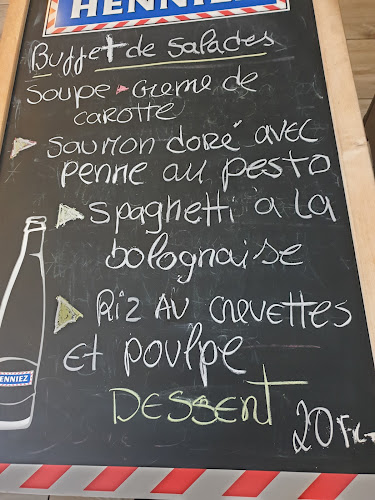 HENNIEZ
Buffet de salades
Soupe Creme de
carotte
saumon doré avec
penne au pesto
spaghetti a la
bolognaise
Riz AU crevettes
et poulpe
HENNIEZ
DESSENT
20 Frs